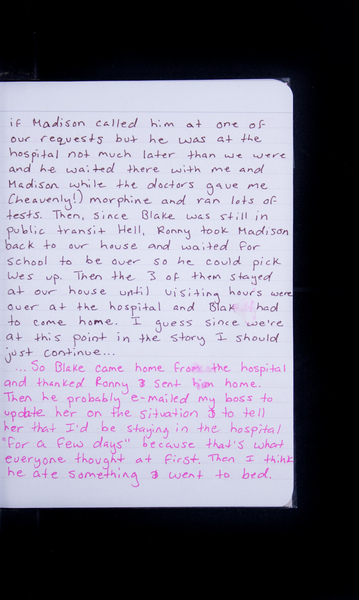 if Madison called him at one of
our requests but he was at the
hospital not much later than we were
and he waited there with me and
Madison while the doctors gave me
(heavenly!) morphine and ran lots of
tests. Then, since Blake was still in
public transit Hell, Ronny took Madison
back to our house and waited for
school to be over so he could pick
Wes up. Then the 3 of them stayed
at our house until visiting hours were
over at the hospital and Blak had
to come home. I guess since we're
at this point in the story I should
just continue...
...So Blake came home from the hospital
and thanked Ronny & sent him home.
Then he probably e-mailed my boss to
update her on the situation & to tell
her that I'd be staying in the hospital
"for a few days" because that's what
everyone thought at first. Then I think
he ate something & went to bed.